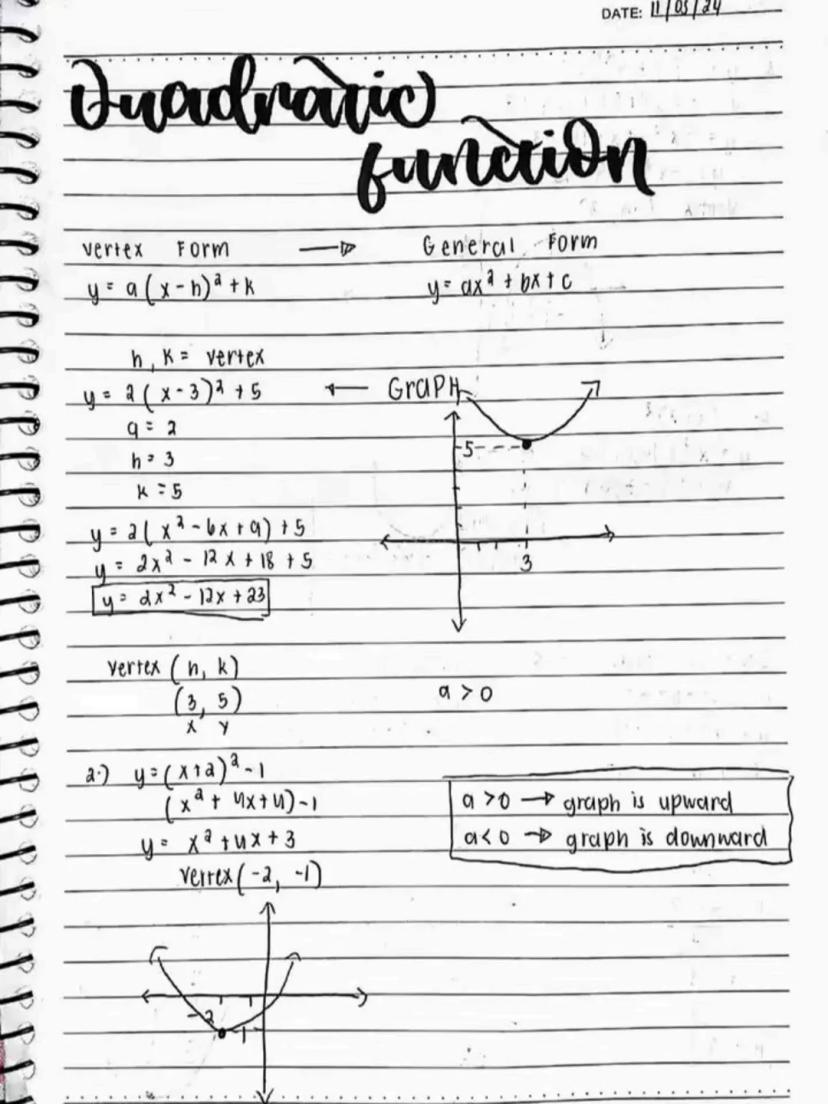 DATE: 11/03/24
Quadratic
function
Vertex Form → General Form
y = a(x-h)² + k
y = ax² + bx + c
h, k = vertex
y = 2(x-3)² + 5 ← GRAPH
a = 2
h = 3
k = 5
5
3
y = 2(x² - 6x + 9) + 5
y = 2x² - 12x + 18 + 5
y = 2x² - 12x + 23
vertex (h, k)
(3, 5)
x y
a > 0
2.) y = (x+2)² - 1
(x² + 4x + 4) - 1
y = x² + 4x + 3
vertex (-2, -1)
a > 0 → graph is upward
a < 0 → graph is downward
-2
-1